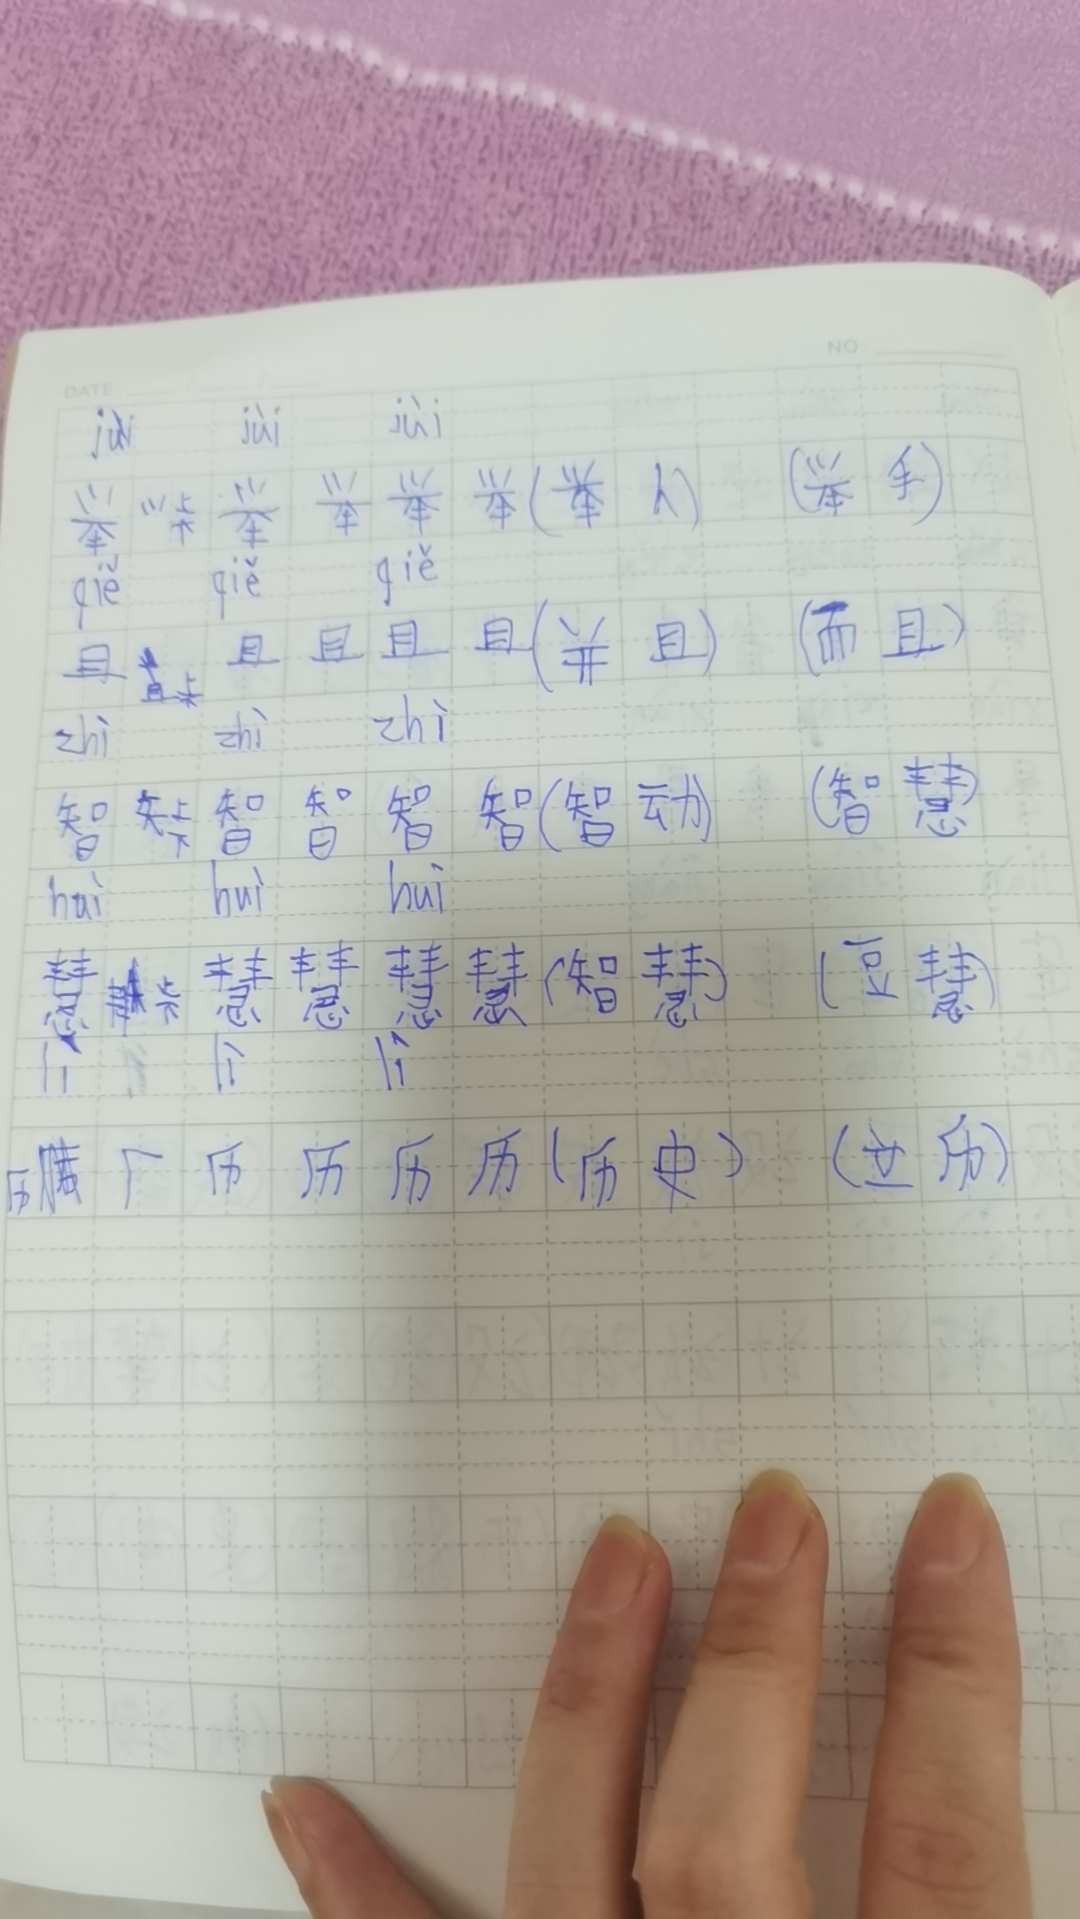 DATE / / NO
jùi jùi jùi
举 举 举 举 举 (举 人) (举 手)
qiě qiě qiě
且 且 且 且 且 (并 且) (而 且)
zhì zhì zhì
智 智 智 智 智 (智 动) (智 慧)
huì huì huì
慧 慧 慧 慧 慧 (智 慧) (豆 慧)
lì lì lì
历 厂 历 历 历 历 (历 史) (立 历)